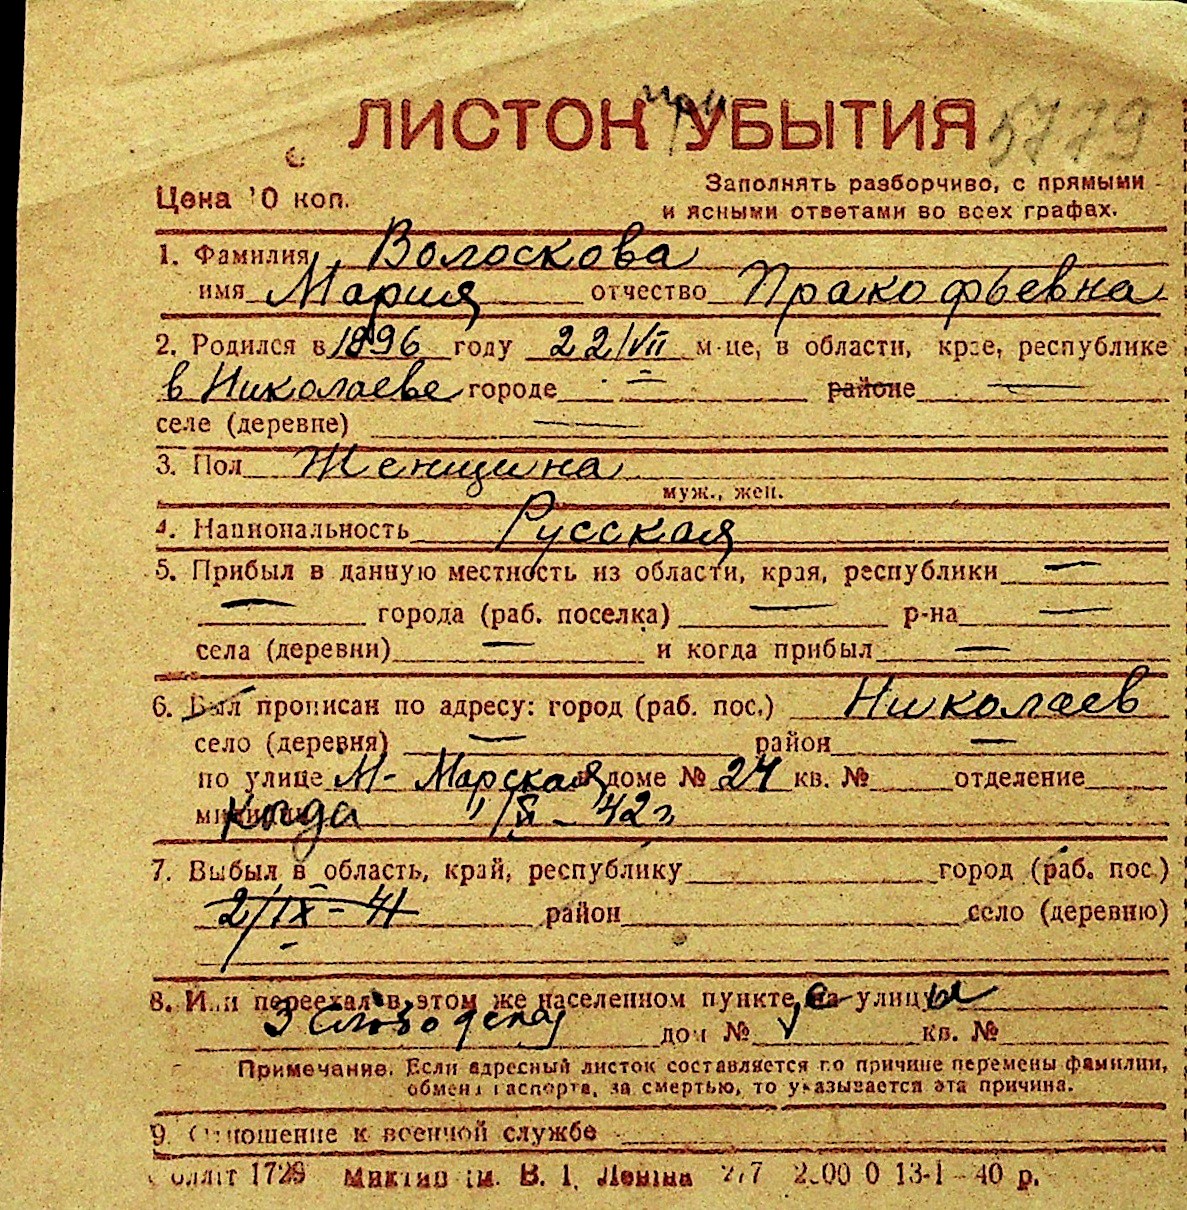 ЛИСТОК при УБЫТИЯ 5779
Цена 10 коп. Заполнять разборчиво, с прямыми
и ясными ответами во всех графах.
1. Фамилия Волоскова
имя Мария отчество Пракофьевна
2. Родился в 1896 году 22/VII м-це, в области, крае, республике
в Николаеве городе — районе —
селе (деревне) —
3. Пол Женщина
муж., жен.
4. Национальность Русская
5. Прибыл в данную местность из области, края, республики —
— города (раб. поселка) — р-на —
села (деревни) — и когда прибыл —
6. Был прописан по адресу: город (раб. пос.) Николаев
село (деревня) — район —
по улице М-Марская в доме № 24 кв. № отделение
милиции Когда 42 г
7. Выбыл в область, край, республику город (раб. пос.)
2/IX - 41 район село (деревню)
8. Или переехал в этом же населенном пункте на с улицу ы
3 Слободская дом № кв. №
Примечание. Если адресный листок составляется по причине перемены фамилии,
обмена паспорта, за смертью, то указывается эта причина.
9. Отношение к военной службе
1729 им. В. І. Леніна 13-I-40 р.